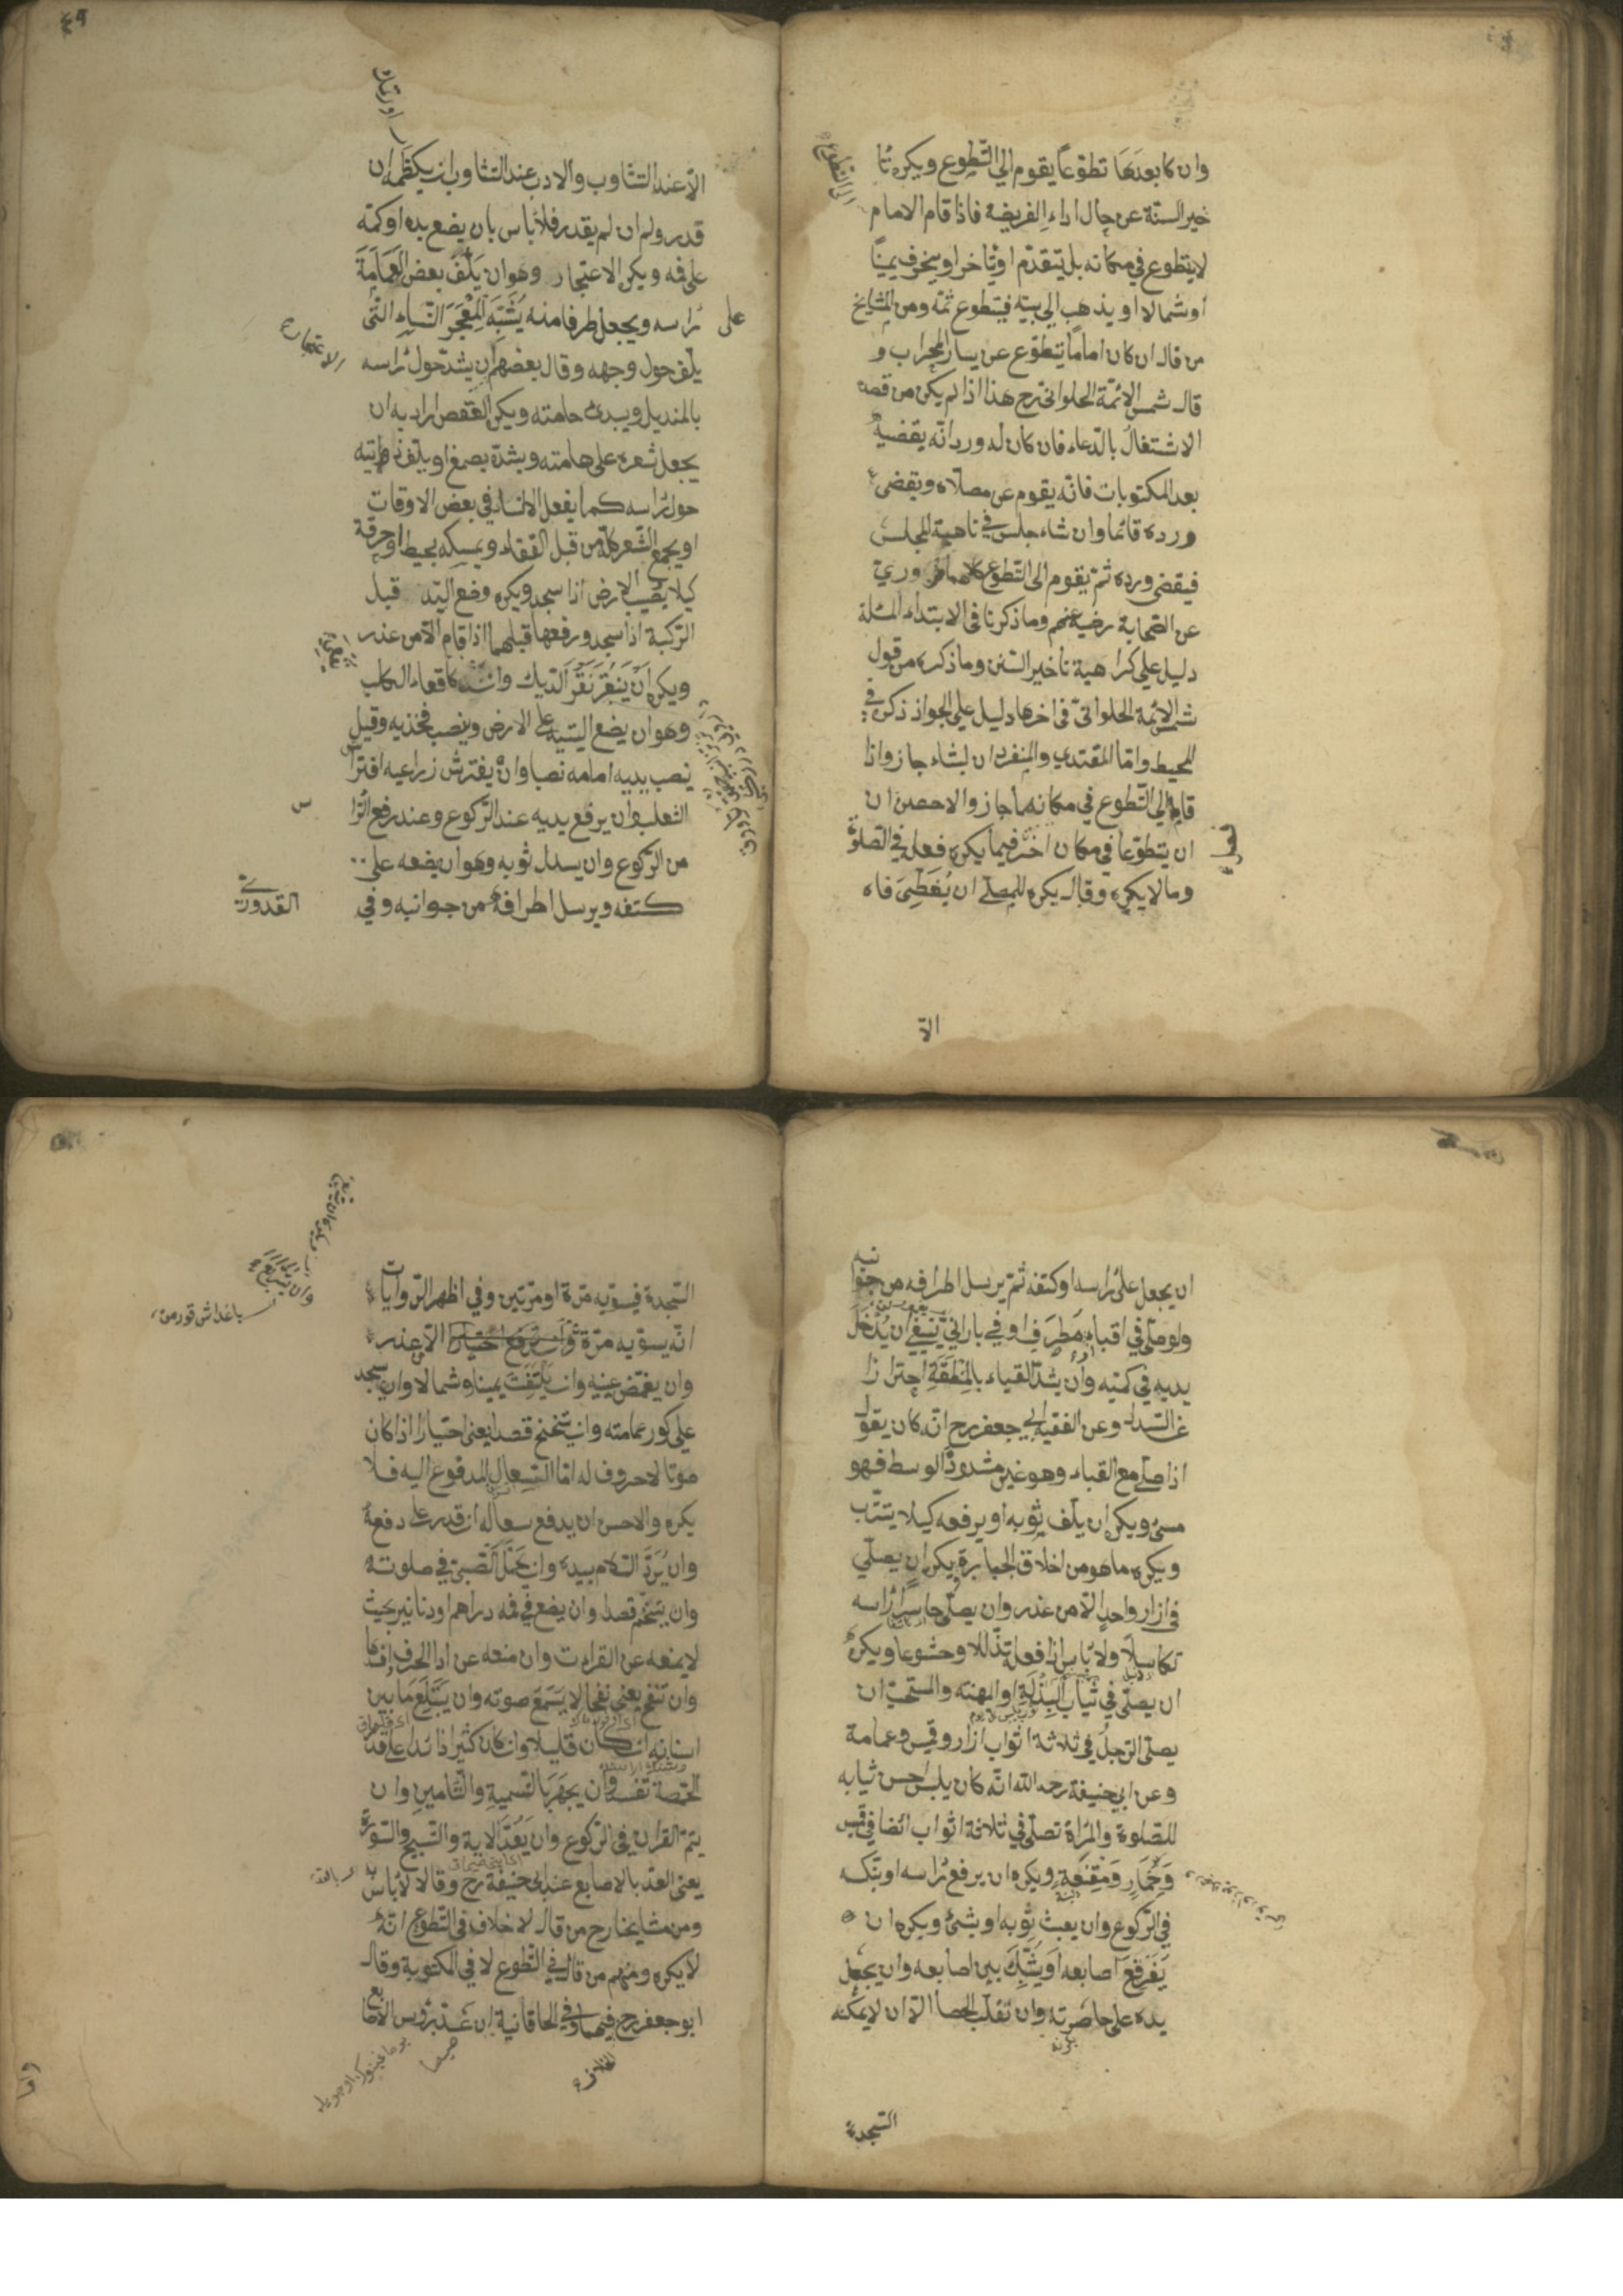 وان كا بعدها تطوّعاً يقوم الي التّطوع ويكره تا
خير السنة عن حال اداء الفريضة فاذا قام الامام
لا يتطوع في مكانه بل يتقدّم او يتاخر او ينحرف يمينًا
او شمالا او يذهب الي بيته فيتطوع ثمّه ومن المشايخ
من قال ان كان اماماً يتطوّع عن يسار المحراب و
قال شمس الائمّة الحلواني رح هذا اذا لم يكن من قصده
الاشتغالُ بالدّعاء فان كان له ورد انّه يقضيه
بعد المكتوبات فانّه يقوم عن مصلّاه ويقضي
ورده قائما وان شاء جلس في ناحية المجلس
فيقضي ورده ثمّ يقوم الى التّطوع كلاهما مروري
عن الصّحابة رضي عنهم وما ذكرنا في الابتداء المسئلة
دليل علي كراهية تاخير السّنن وما ذكره من قول
شمس الائمة الحلواني في اخرها دليل علي الجواز ذكره في
المحيط وامّا المقتدي والمنفرد ان لبثاء جاز واذا
قاما الي التّطوع في مكانه ما جاز والاحصن ان
ان يتطوّعا في مكان اخر فيما يكره فعله في الصّلوة
فصل
وما لا يكره وقال يكره للمصلّي ان يُغَطِّيَ فاه
الّا
الّا عند التّثاوب والادب عند التثاوب ان يكظمه ان
قدر ولم ان لم يقدر فلا باس بان يضع يده او كمّه
علي فه ويكره الاعتجار وهو ان يَلُفَّ بعض العَمَامَةَ
علي رَاسه ويجعل طرفا منه يُشَبِّه المِعْجَرَ النّساءِ الّتي
الاعتجار
يلف حول وجهه وقال بعضهم ان يشدّ حول رَاسه
بالمنديل ويبدي حامته ويكره العقص اراد به ان
يجعل شعره على هامته ويشدّه بصمغ او يلفّ
حول رَاسه كما يفعل النساء في بعض الاوقات
او يجمع الشّعر كلّه من قبل القفاء ويمسكه بخيط او خرقة
كيلا يصيب الارض اذا سجد ويكره وضع اليد قبل
الرّكبة اذا سجد ورفعها قبلهما اذا قام الّا من عذر
ويكره اَنْ يَنْقُرَ نَقْرَ الدّيك وان كاقعاء الكلب
وهو ان يضع اليتيه علي الارض وينصب فخذيه وقيل
ينصب يديه امامه نصبا وانْ يفترش زراعيه افترا
الثعلب وان يرفع يديه عند الرّكوع وعند رفع الرا
من الرّكوع وان يسدل ثوبه وهو ان يضعه علي
كتفه ويرسل اطرافه من جوانبه وفي
القدوري
ان يجعل علي رَاسه او كتفه ثمّ يرسل اطرافه من جوا
نبه
ولو صلّي في اقباء مَطرَفٍ او في بارانيّ ينبغي ان يُدْخَلَ
يديه في كمّيه وان يشدّ القباء بالمِنْطَقَةِ احترازا
عن السّدل وعن الفقيه ابي جعفر رح انّه كان يقول
اذا صلّي مع القباء وهو غير مشدود الوسط فهو
مسئ ويكره ان يلفّ ثوبه او يرفعه كيلا يتترّب
ويكره ما هو من اخلاق الجبابرة يكره ان يصلّي
في ازار واحدٍ الّا من عذر وان يصلّي حاسراً رَاسه
تكاسلًا ولا باس اذا فعله تذلّلا وخشوعا ويكره
ان يصلّي في ثياب البِذْلَةِ او المهنة والمستحبّ ان
يصلّي الرّجلُ في ثلاثة اثواب ازار وقميص وعمامة
وعن ابي حنيفة رحمه الله انّه كان يلبس احسن ثيابه
للصّلوة والمراة تصلّي في ثلاثة اثواب ائضا في قميص
وَخِمَارٍ وَمِقْنَعَةٍ ويكره ان يرفع رَاسه او ينكسه
في الرّكوع وان يعبث بثوبه او بشئ ويكره ان
يُفَرقعَ اصابعه او يُشَبِّكَ بين اصابعه وان يجعل
يده علي خاصرته وان تقلب الحصا الّا ان لا يمكّنه
السّجدة
السّجدة فيسوّيه مرّة او مرّتين وفي اظهر الرّوايات
انّه يسوّيه مرّة الّا عذر
وان يغمّض عينيه وان يَلتَفِتَ يمينا وشمالا وان يسجد
علي كور عمامته وان يتنحنح قصدا يعني احتيارا اذا كان
صوتا لا حروف له امّا السّعال المدفوع اليه فلا
يكره والاحسن ان يدفع سعاله ان قدر علي دفعه
وان يُرَدَّ السّلام بيده وان يَحمَلَ الصّبيّ في صلوته
وان يتنخّم قصدا وان يضع في فمه دراهم او دنانير بحيث
لا يمنعه عن القراءت وان منعه عن ادا الحرف افسدها
وان ينفخ يعني نفخا لا يَسمَعَ صوته وان يَبتَلِعَ ما بين
اسنانه ان كان قليلا وان كان كثيرا زائدا علي قدر
الحمّصة تفسد وان يجهَرَ بالتّسمية والتّامين وان
يتمّ القران في الرّكوع وان يَعُدَّ الاية والتّسبيح والسّورة
يعني العدّ بالاصابع عند ابي حنيفة رح وقالا لا باس به
ومن مشايخنا رح من قال لا خلاف في التّطوّع انّه
لا يكره ومنهم من قال في التّطوع لا في المكتوبة وقال
ابو جعفر رح فيهما وفي الخاقانية ان غمز برؤس الاصا
بع